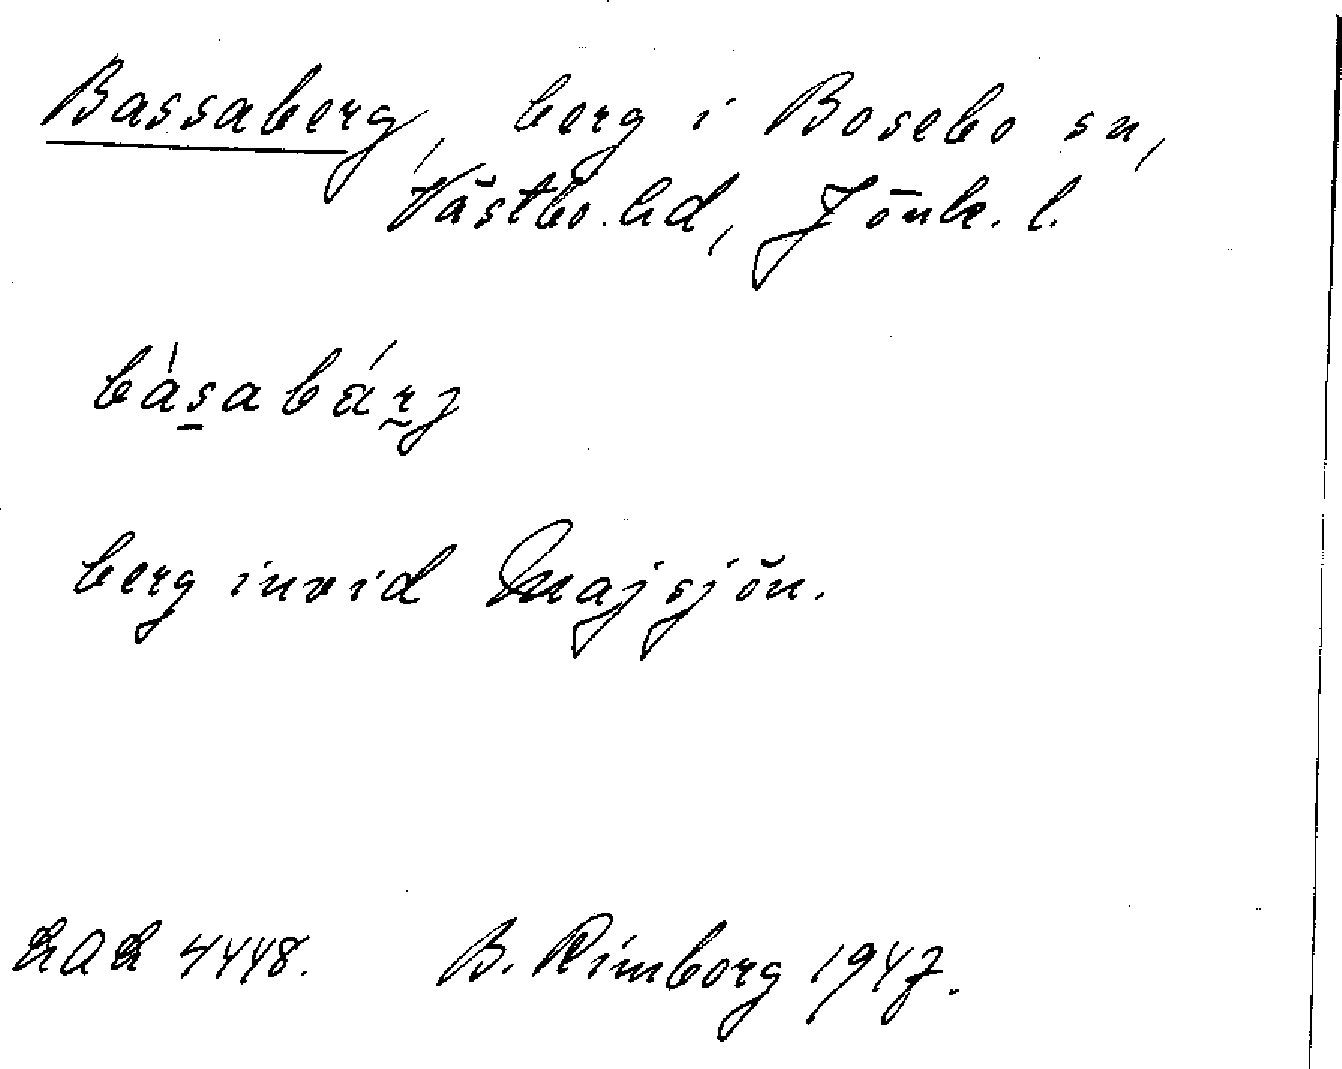 Bassaberg, berg i Bosebo sn,
Västbo hd, Jönk. l.
bàsabárj
berg invid Majsjön.
LAL 4448. B. Rimborg 1947.